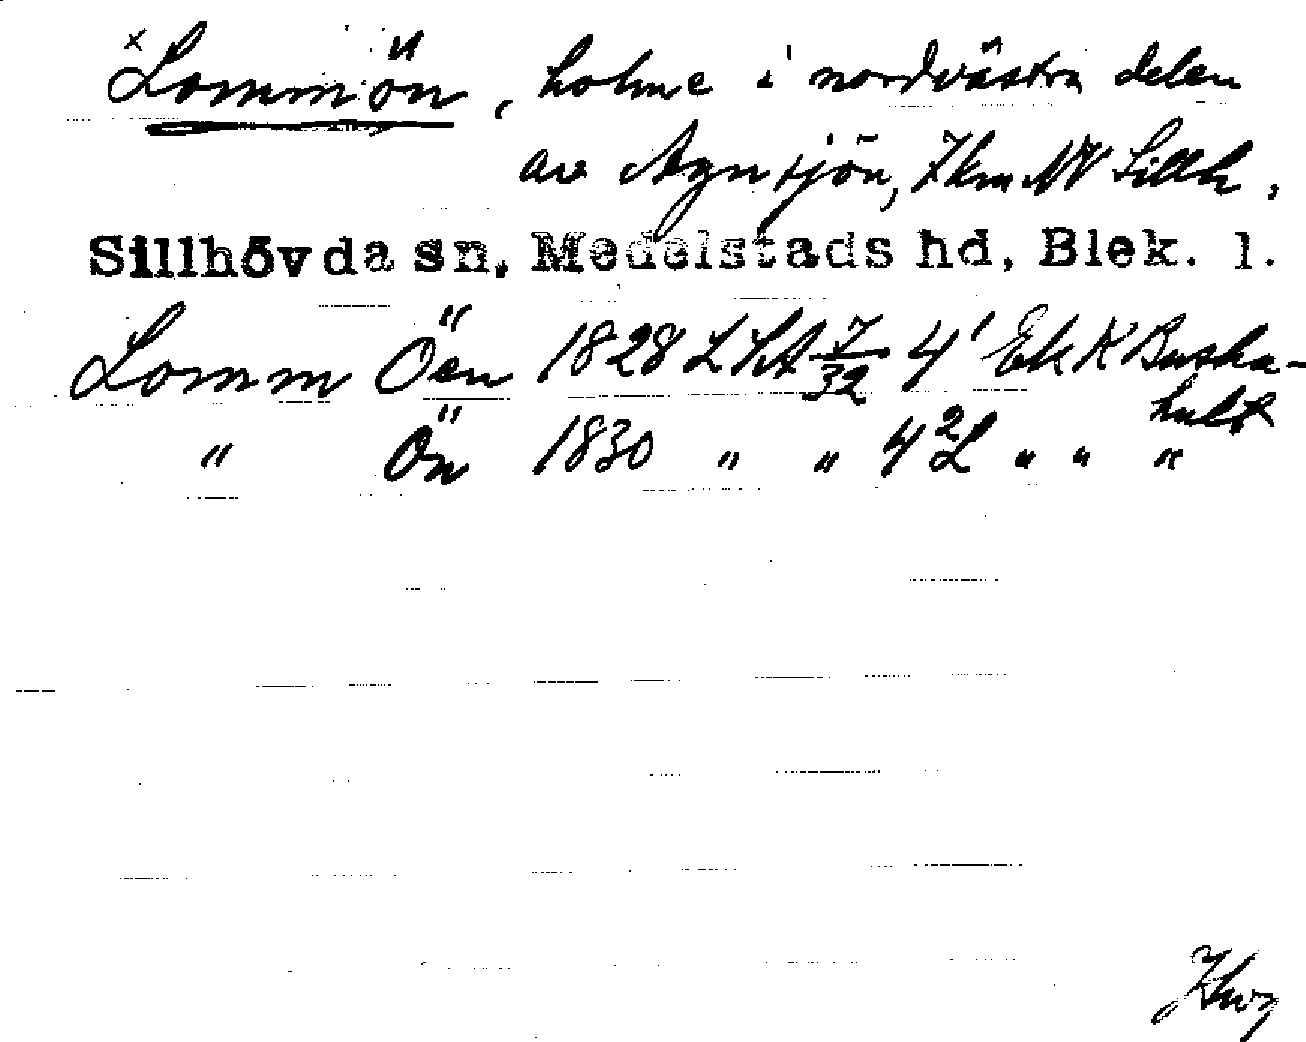 x Lommön, holme i nordvästra delen
av Agnsjön, 7 km NV Sillh.
Sillhövda sn, Medelstads hd, Blek. l.
Lomm Öen 1828 L HA 7/32 4' Ek K Buska-
hult
" Ön 1830 " " 4 2L " " "